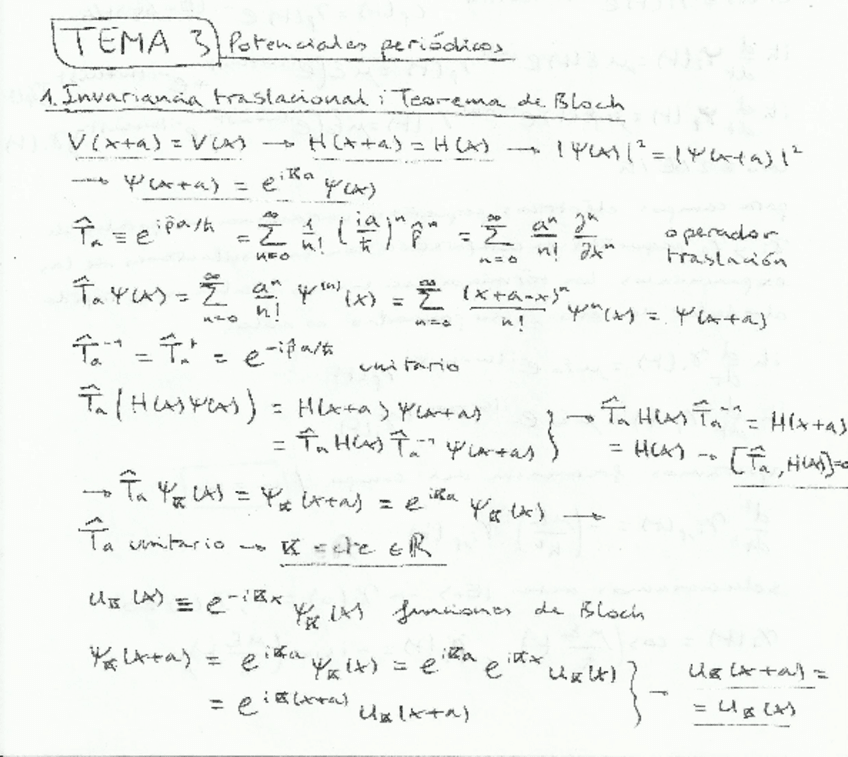 TEMA 3 Potenciales periódicos
1. Invariancia traslacional i Teorema de Bloch
V(x+a) = V(x) → H(x+a) = H(x) → |Ψ(x)|² = |Ψ(x+a)|²
→ Ψ(x+a) = e^{iKa} Ψ(x)
T̂a ≡ e^{ip̂a/ħ} = ∑_{n=0}^{∞} 1/n! (ia/ħ)^n p̂^n = ∑_{n=0}^{∞} a^n/n! ∂^n/∂x^n operador traslación
T̂a Ψ(x) = ∑_{n=0}^{∞} a^n/n! Ψ^{(n)}(x) = ∑_{n=0}^{∞} (x+a-x)^n/n! Ψ^n(x) = Ψ(x+a)
T̂a^{-1} = T̂a^+ = e^{-ip̂a/ħ} unitario
T̂a (H(x)Ψ(x)) = H(x+a) Ψ(x+a) } → T̂a H(x) T̂a^{-1} = H(x+a)
= T̂a H(x) T̂a^{-1} Ψ(x+a) } = H(x) → [T̂a, H(x)]=0
→ T̂a Ψ_K(x) = Ψ_K(x+a) = e^{iKa} Ψ_K(x) →
T̂a unitario → K = cte ∈ ℝ
u_K(x) ≡ e^{-iKx} Ψ_K(x) funciones de Bloch
Ψ_K(x+a) = e^{iKa} Ψ_K(x) = e^{iKa} e^{iKx} u_K(x) } → u_K(x+a) =
= e^{iK(x+a)} u_K(x+a) } = u_K(x)